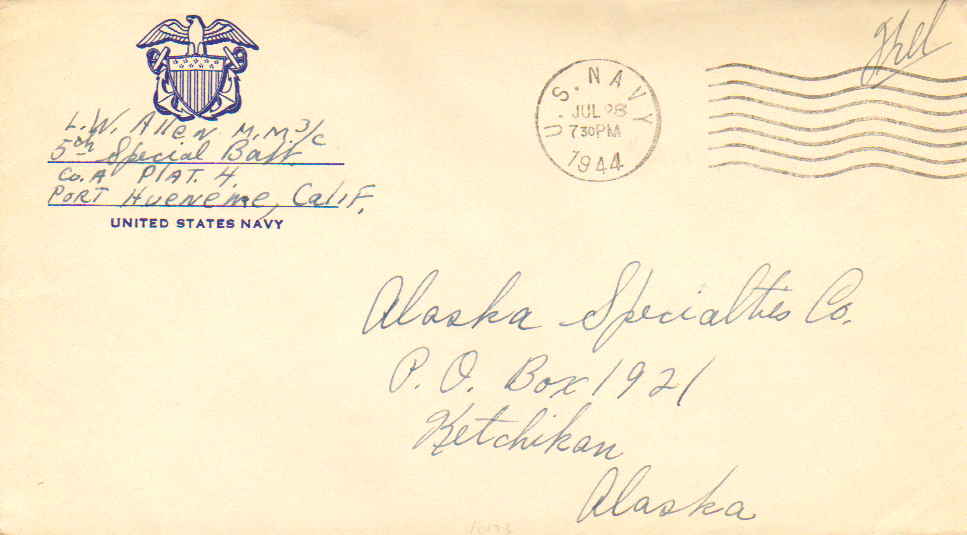 L.W. Allen M.M 3/c
5th Special Batt.
Co. A PLAT. 4.
PORT Hueneme, Calif.
UNITED STATES NAVY
U.S. NAVY
JUL 28
7 30 PM
1944
Alaska Specialties Co.
P.O. Box 1921
Ketchikan
Alaska